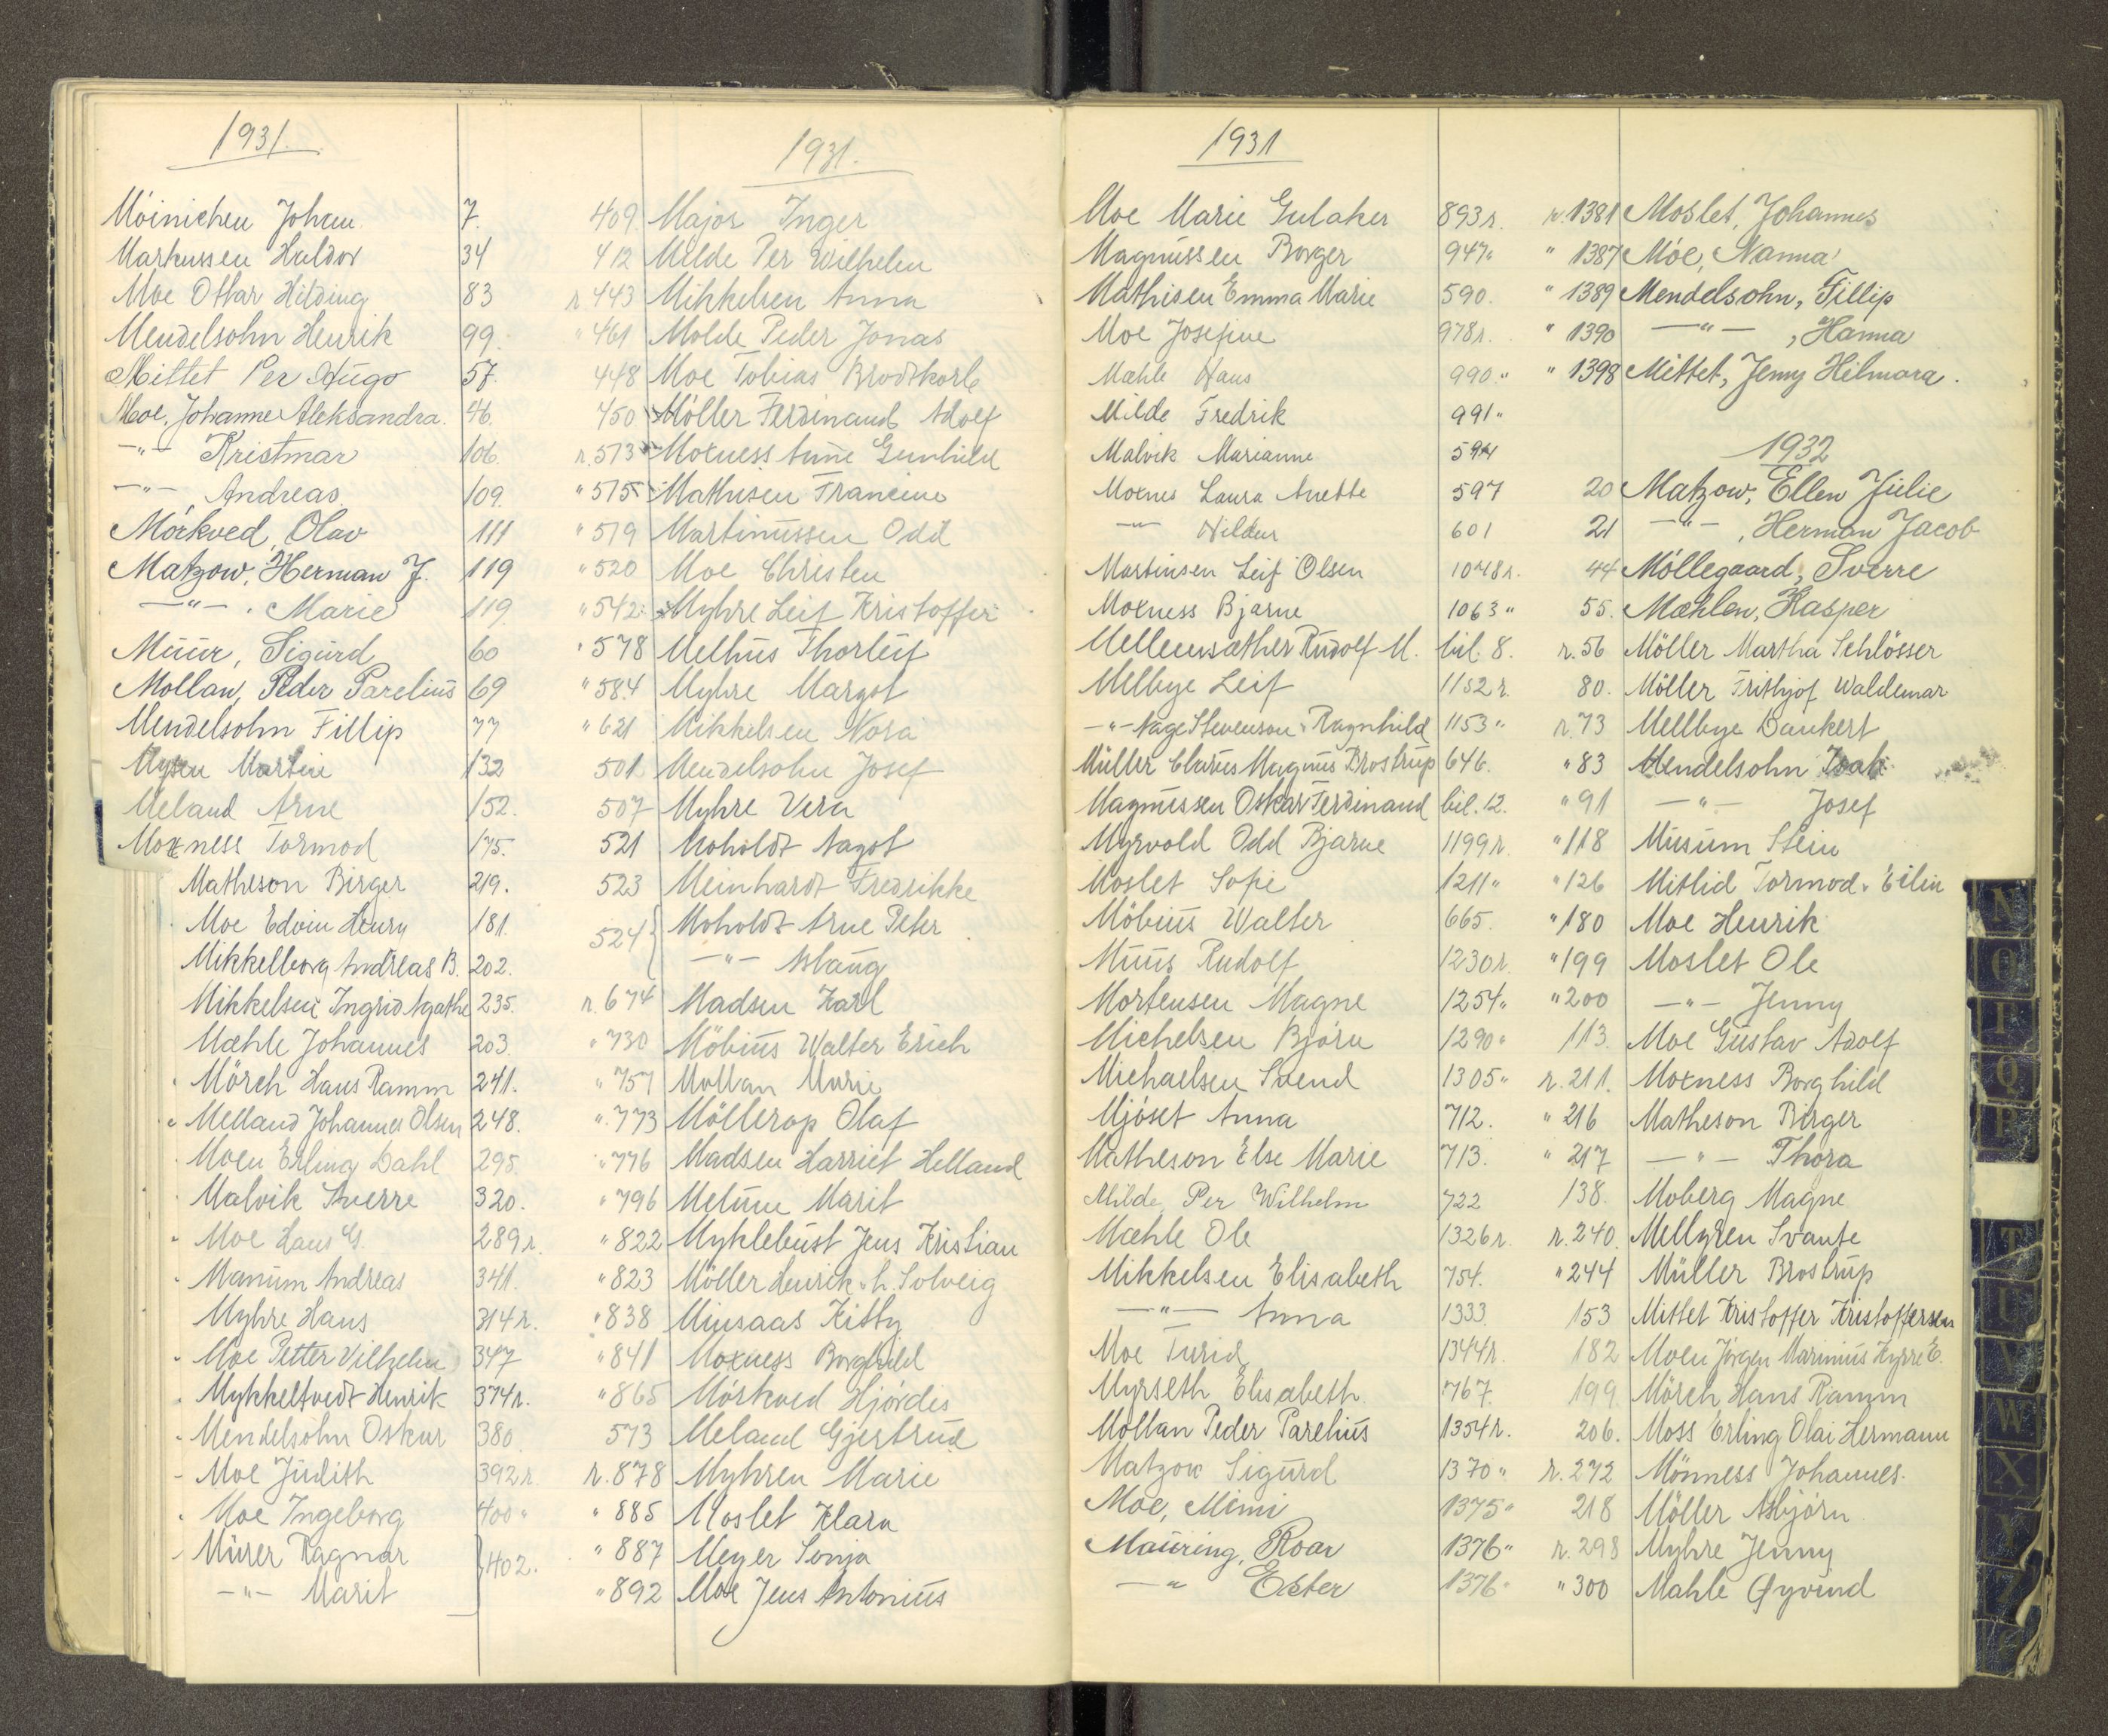 1931.
Móinichen Johan 7.
Markussen Haldor 34
Moe Ottar Hilding 83
Mendelsohn Henrik 99.
Mittet Per Hugo 57.
Moe, Johanne Aleksandra. 46.
—"— Kristmar 106.
—"— Andreas 109.
Mórkved, Olav 111
Matzow, Herman J. 119
—"— . Marie 119.
Muur, Sigurd 60
Mollan, Peder Parelius 69
Mendelsohn Fillip 77
Mysen Martin 132
Meland Arne 152.
Moxness Tormod 175.
Matheson Birger 219.
Moe Edvin Henry 181.
Mikkelborg Andreas B. 202.
Mikkelsen Ingrid Agathe 235.
Mæhle Johannes 203.
Mörch Hans Ramm 241.
Melland Johannes Olsen 248.
Moen Erling Dahl 295.
Malvik Sverre 320.
Moe Hans G 289 r.
Manum Andreas 341.
Myhre Hans 314 r.
Moe Petter Vilhelm 347
Mykkeltvedt Henrik 374 r.
Mendelsohn Oskar 380.
Moe Judith 392 r.
Moe Ingeborg 400 "
Murer Ragnar } 402.
—"— Marit
1931.
409. Major Inger
412 Milde Per Wilhelm
r. 443 Mikkelsen Anna
" 461 Molde Peder Jonas
448 Moe Tobias Brodtkorb
450 Möller Ferdinand Adolf
r. 513 Moxness Anne Gunhild
" 515 Mathisen Francine
" 519 Martinussen Odd
" 520 Moe Christen
" 542 Myhre Leif Kristoffer
" 578 Melhus Thorleif
" 584 Myhre Margot
" 621 Mikkelsen Nora
501 Mendelsohn Josef
507 Myhre Vera
521 Moholdt Aagot
523 Meinhardt Fredrikke
524 { Moholdt Arne Peter
—"— Aslaug
r. 674 Madsen Karl
" 730 Möbius Walter Erich
" 757 Mollan Marie
" 773 Möllerop Olaf
" 776 Madsen Harriet Helland
" 796 Melum Marit
" 822 Myklebust Jens Kristian
" 823 Möller Henrik " h. Solveig
" 838 Minsaas Kitty
" 841 Moxness Borghild
" 865 Mórkved Hjördis
573 Meland Gjertrud
r. 878 Myhren Marie
" 885 Moslet Klara
" 887 Meyer Sonja
" 892 Moe Jens Antonius
1931
Moe Marie Gulaker 893 r.
Magnussen Borger 947 "
Mathisen Emma Marie 590.
Moe Josefine 978 r.
Mæhle Hans 990. "
Milde Fredrik 991 "
Malvik Marianne 594
Moxnes Laura Anette 597
—"— Hildur 601
Martinsen Leif Olsen 1048 r.
Moxness Bjarne 1063 "
Mellemsæther Rudolf M. bil. 8.
Melbye Leif 1152 r.
—"— Aage Stevenson " Ragnhild 1153 "
Müller Clarus Magnus Brostrup 646.
Magnussen Oskar Ferdinand bil. 12.
Myrvold Odd Bjarne 1199 r.
Moslet Sofie 1211 "
Möbius Walter 665.
Muus Rudolf 1230 r.
Mortensen Magne 1254 "
Michelsen Björn 1290 "
Michaelsen Svend 1305 "
Mjóset Anna 712.
Matheson Else Marie 713.
Milde, Per Wilhelm 722
Mæhle Ole 1326 r.
Mikkelsen Elisabeth 754.
—"— Anna 1333.
Moe Turid 1344 r.
Myrseth Elisabeth 767.
Mollan Peder Parelius 1354 r.
Matzow Sigurd 1370 "
Moe, Mimi 1375 "
Mauring, Roar 1376 "
—"— Ester 1376 "
r. 1381 Moslet, Johannes
" 1387 Moe, Nanna
" 1389 Mendelsohn, Fillip
" 1390 —"— , Hanna
" 1398 Mittet, Jenny Hilmara.
1932
20 Matzow, Ellen Julie
21 —"— , Herman Jacob
44 Móllegaard, Sverre
55. Mæhlen, Kasper
r. 56 Möller Martha Schlösser
80. Möller Frithjof Waldemar
r. 73 Mellbye Dankert
" 83 Mendelsohn Isak
" 91 —"— Josef
" 118 Musum Stein
" 126 Mitlid Tormod " Eilin
" 180 Moe Henrik
" 199 Moslet Ole
" 200 —"— Jenny
113. Moe Gustav Adolf
r. 211. Moxness Borghild
" 216 Matheson Birger
" 217 —"— Thora
138. Moberg Magne
r. 240. Mellgren Svante
" 244 Müller Brostrup
153 Mittet Kristoffer Kristoffersen
182 Moen Jörgen Marinius Hyrre E.
199 Mörch Hans Ramm
206. Moss Erling Olai Hermann
r. 272 Mönness Johannes.
218 Möller Asbjörn
r. 298 Myhre Jenny
" 300 Mæhle Øyvind
N
O
P
Q
R
T
U
V
W
X
Y
Z